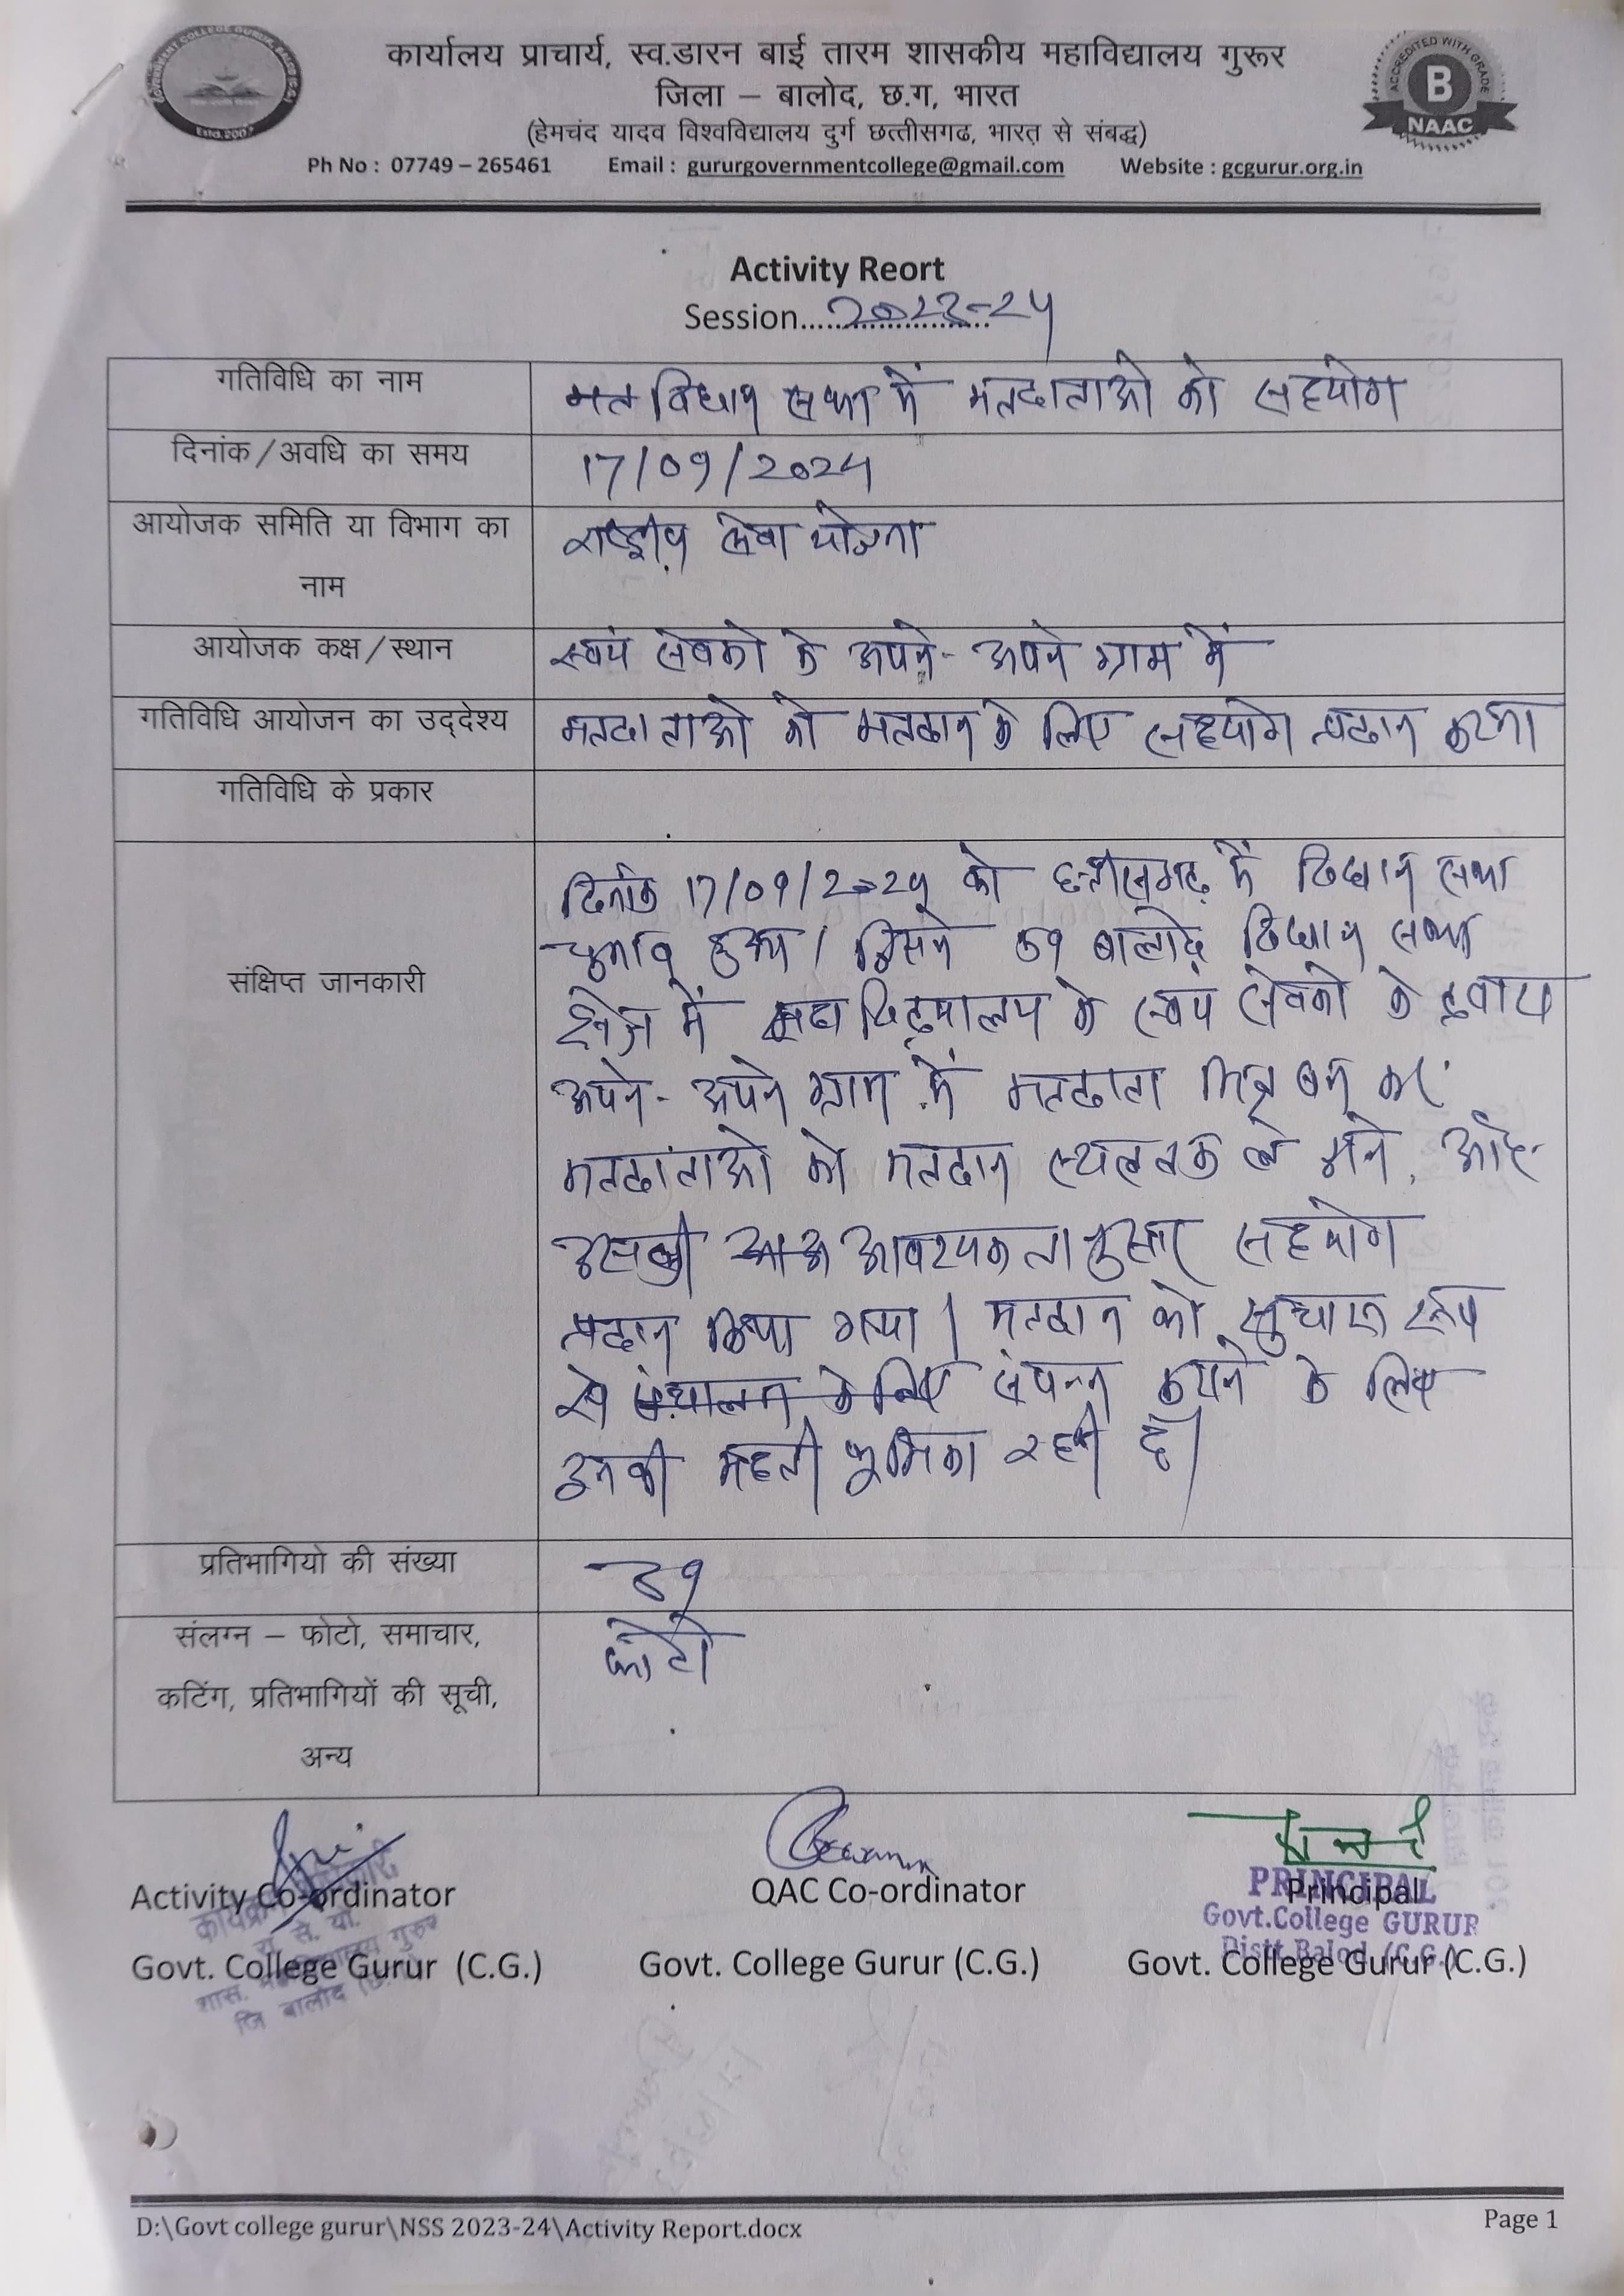 GOVERNMENT COLLEGE GURUR
Estd.2007
कार्यालय प्राचार्य, स्व.डारन बाई तारम शासकीय महाविद्यालय गुरूर
जिला – बालोद, छ.ग, भारत
(हेमचंद यादव विश्वविद्यालय दुर्ग छत्तीसगढ, भारत् से संबद्ध)
Ph No : 07749 – 265461 Email : gururgovernmentcollege@gmail.com Website : gcgurur.org.in
ACCREDITED WITH GRADE
B
NAAC
Activity Reort
Session......2023-24
गतिविधि का नाम
विधान सभा में मतदाताओ को सहयोग
दिनांक/अवधि का समय
17/09/2024
आयोजक समिति या विभाग का
नाम
राष्ट्रीय सेवा योजना
आयोजक कक्ष/स्थान
स्वयं सेवको के अपने- अपने ग्राम में
गतिविधि आयोजन का उद्देश्य
मतदाताओ को मतदान के लिए सहयोग प्रदान करना
गतिविधि के प्रकार
संक्षिप्त जानकारी
दिनांक 17/09/2024 को छत्तीसगढ़ में विधान सभा
चुनाव हुआ। जिसमे 59 बालोद विधान सभा
क्षेत्र में महाविद्यालय के स्वयं सेवको के द्वारा
अपने- अपने ग्राम में मतदाता मित्र बन कर
मतदाताओ को मतदान स्थल तक ले जाने, और
उसकी आवश्यकतानुसार सहयोग
प्रदान किया गया। मतदान को सुचारू रूप
से संचालन के लिए संपन्न कराने के लिए
इनकी महती भूमिका रही है।
प्रतिभागियो की संख्या
39
संलग्न – फोटो, समाचार,
कटिंग, प्रतिभागियों की सूची,
अन्य
फोटो
Activity Co-ordinator QAC Co-ordinator Principal
Govt. College Gurur (C.G.) Govt. College Gurur (C.G.) Govt. College Gurur (C.G.)
रा. से. यो.
जि बालोद
PRINCIPAL
Govt.College GURUR
Distt.Balod (C.G.)
D:\Govt college gurur\NSS 2023-24\Activity Report.docx
Page 1